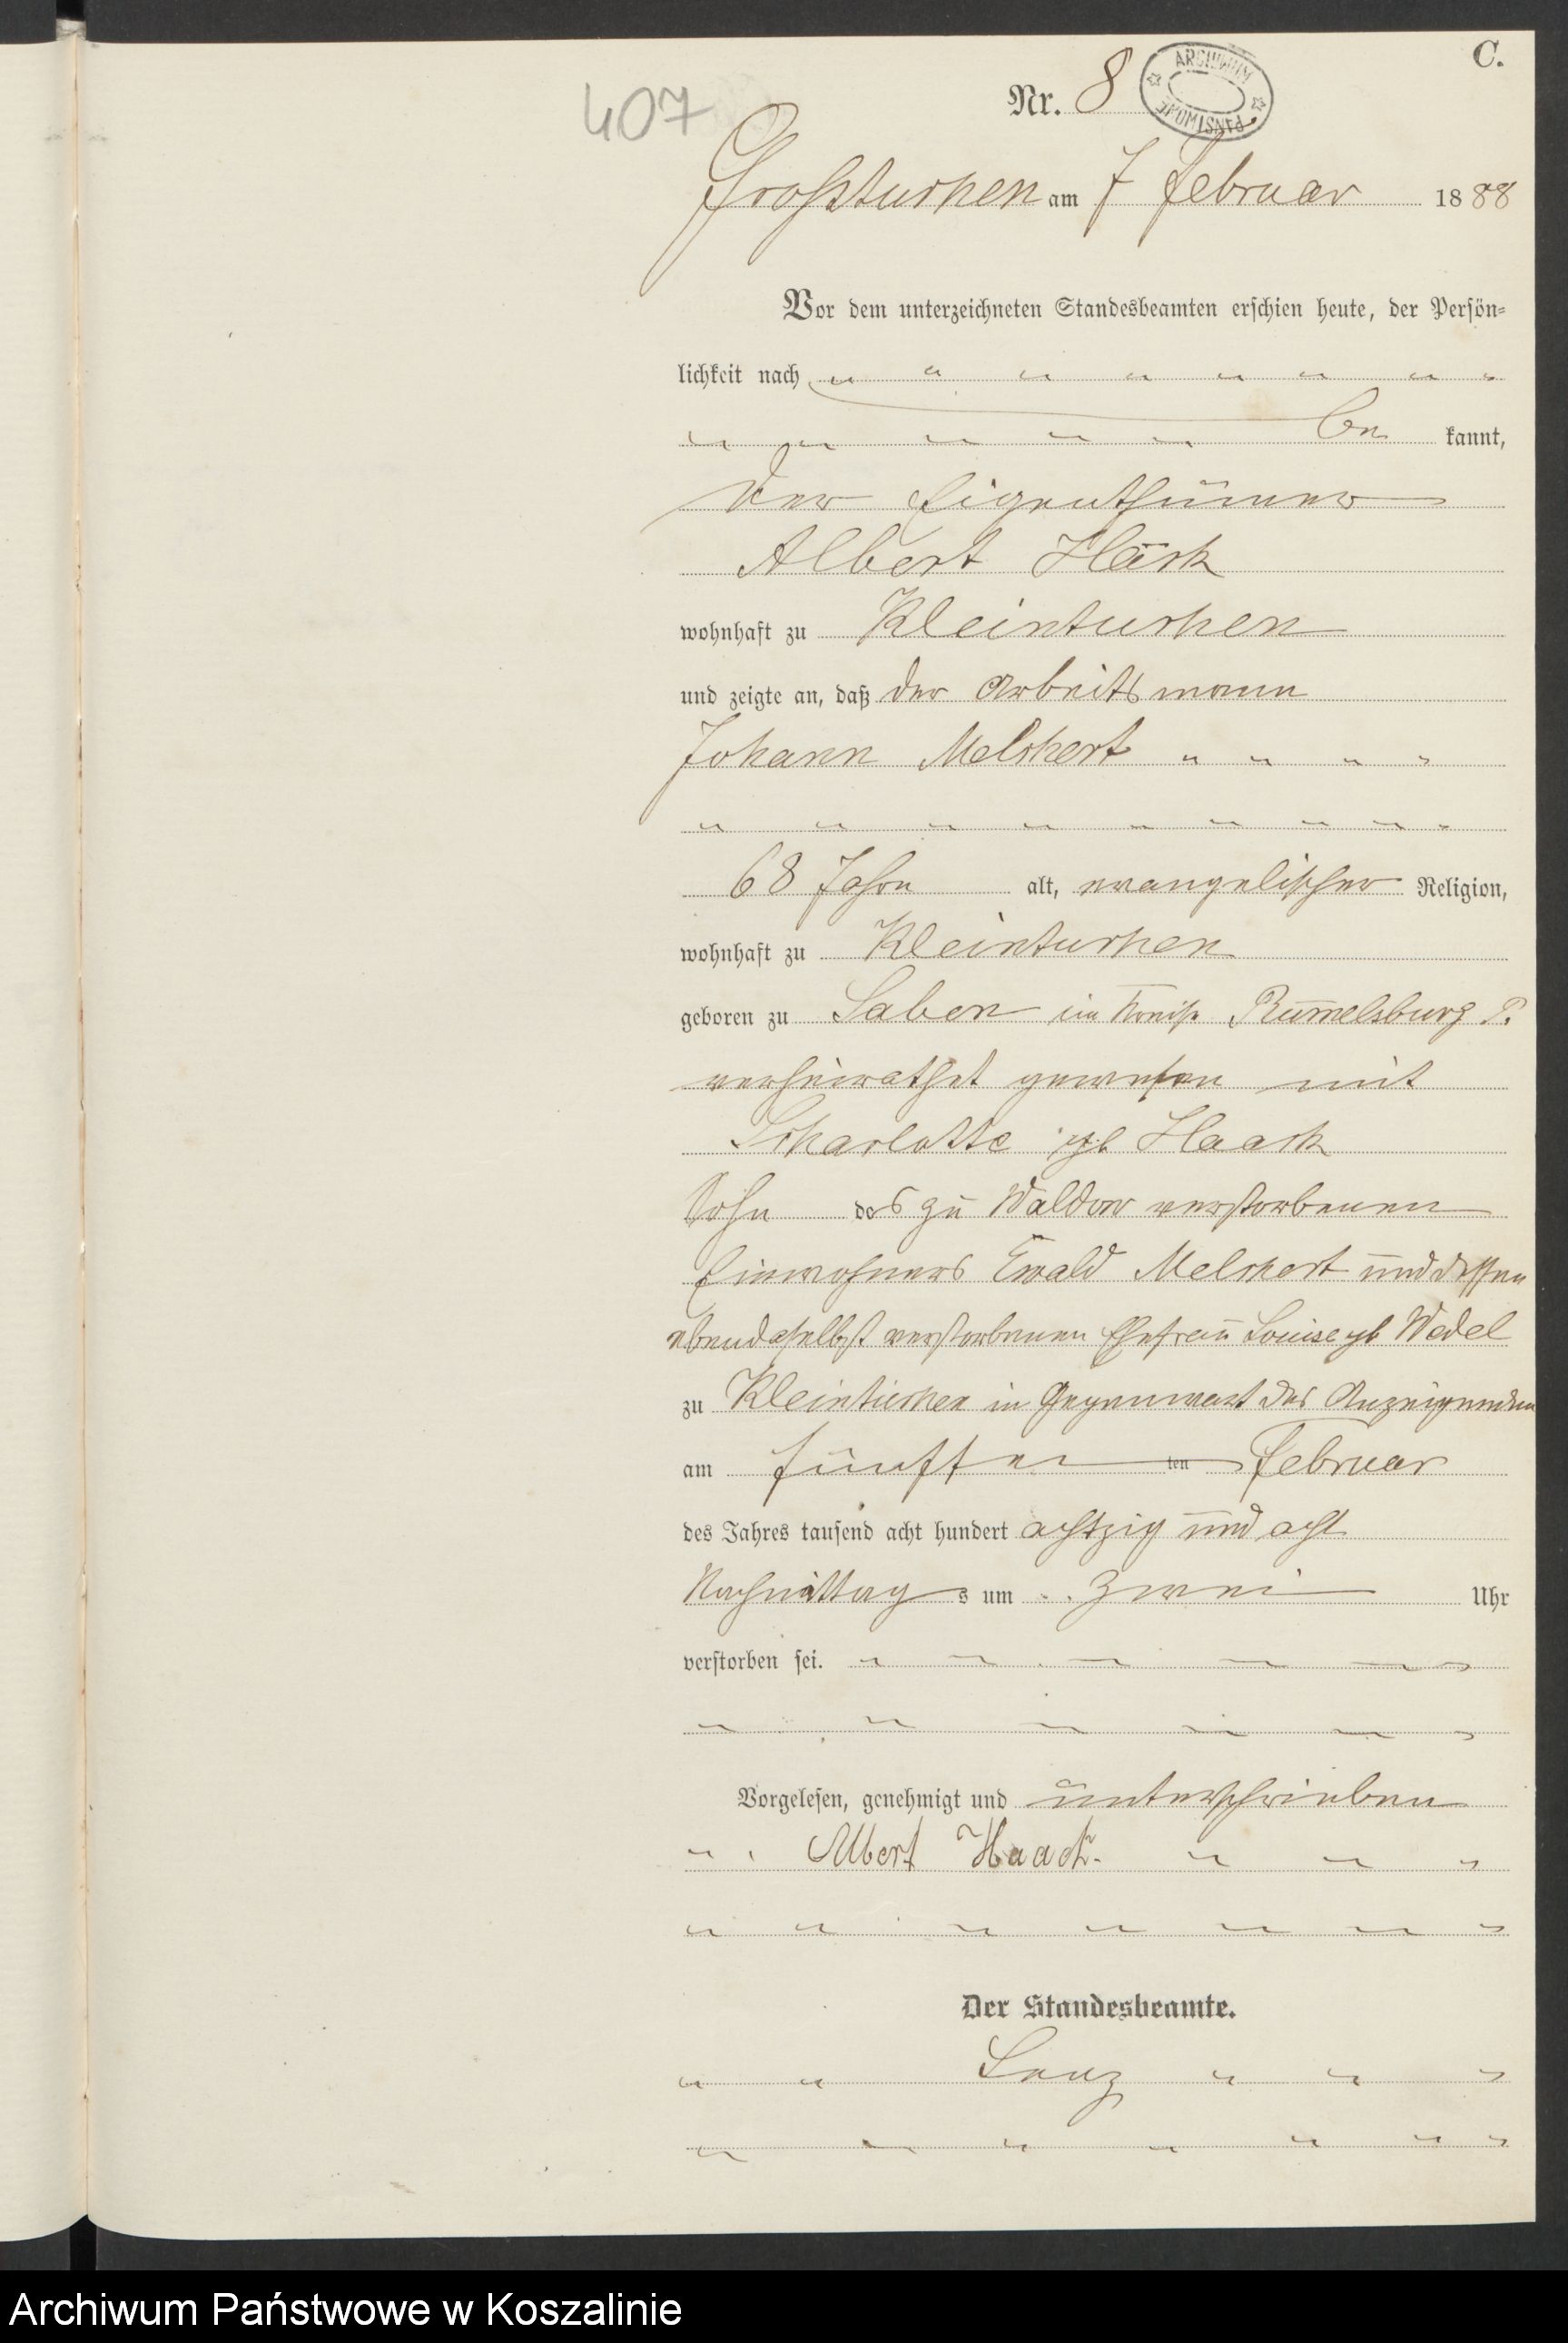 C.
407
Nr. 8
ARCHIWUM PAŃSTWOWE
Großtuchen am 7 Februar 1888
Vor dem unterzeichneten Standesbeamten erschien heute, der Persön-
lichkeit nach " " " " " " " "
" " " " " be kannt,
der Eigenthümer
Albert Haack
wohnhaft zu Kleintuchen
und zeigte an, daß der Arbeitsmann
Johann Melchert " " " "
" " " " " " " " "
68 Jahre alt, evangelischer Religion,
wohnhaft zu Kleintuchen
geboren zu Saben im Kreise Rummelsburg P.
verheirathet gewesen mit
Scharlotte gb Haack
Sohn des zu Waldow verstorbenen
Einwohners Ewald Melchert und dessen
ebendaselbst verstorbenen Ehefrau Louise gb Wedel
zu Kleintuchen in Gegenwart des Anzeigenden
am fünften ten Februar
des Jahres tausend acht hundert achtzig und acht
Nachmittag s um zwei Uhr
verstorben sei. " " " " "
" " " " " "
Vorgelesen, genehmigt und unterschrieben
" " Albert Haack. " " "
" " " " " " "
Der Standesbeamte.
" " " " "
" " " " " " "
Archiwum Państwowe w Koszalinie